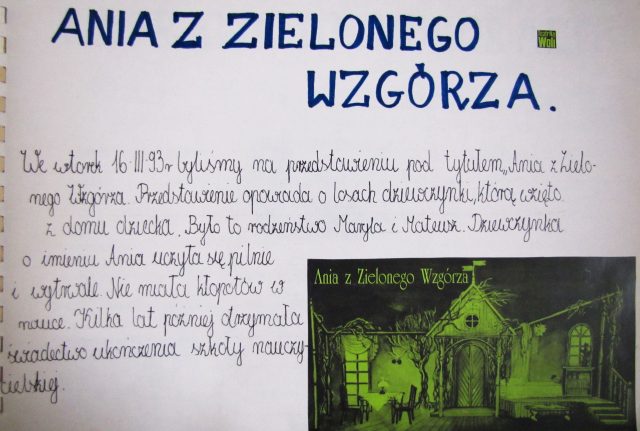 ANIA Z ZIELONEGO
WZGÓRZA.
We wtorek 16 III 93r byliśmy na przedstawieniu pod tytułem „Ania z Zielo-
nego Wzgórza. Przedstawienie opowiada o losach dziewczynki, którą wzięto
z domu dziecka. Było to rodzeństwo Maryla i Mateusz. Dziewczynka
o imieniu Ania uczyła się pilnie
i wytrwale. Nie miała kłopotów w
nauce. Kilka lat później otrzymała
świadectwo ukończenia szkoły nauczy-
cielskiej.
Ania z Zielonego Wzgórza